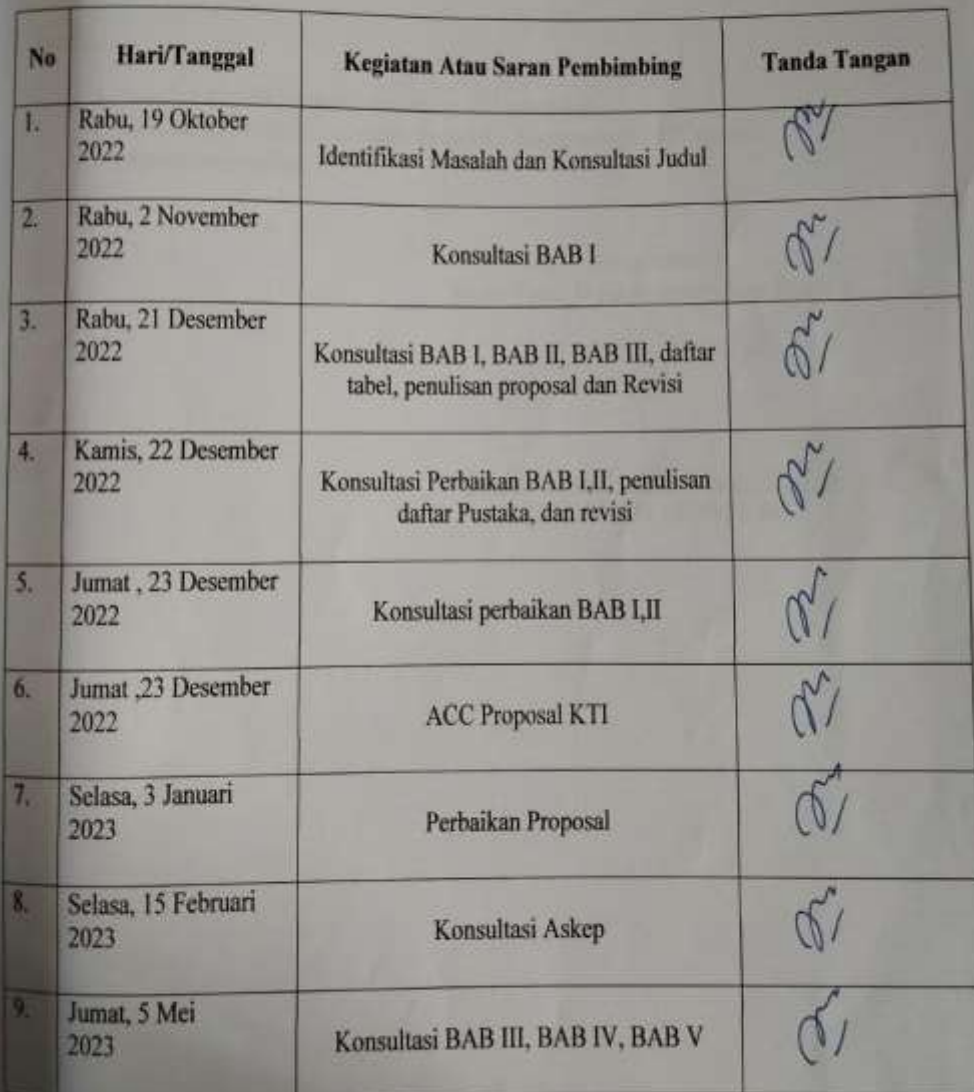 No Hari/Tanggal Kegiatan Atau Saran Pembimbing Tanda Tangan
1. Rabu, 19 Oktober
2022
Identifikasi Masalah dan Konsultasi Judul
2. Rabu, 2 November
2022
Konsultasi BAB I
3. Rabu, 21 Desember
2022
Konsultasi BAB I, BAB II, BAB III, daftar
tabel, penulisan proposal dan Revisi
4. Kamis, 22 Desember
2022
Konsultasi Perbaikan BAB I,II, penulisan
daftar Pustaka, dan revisi
5. Jumat , 23 Desember
2022
Konsultasi perbaikan BAB I,II
6. Jumat ,23 Desember
2022
ACC Proposal KTI
7. Selasa, 3 Januari
2023
Perbaikan Proposal
8. Selasa, 15 Februari
2023
Konsultasi Askep
9. Jumat, 5 Mei
2023
Konsultasi BAB III, BAB IV, BAB V